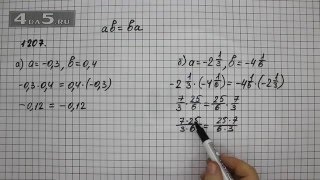 4DA5.RU
ab = ba
1207.
а) a = -0,3, b = 0,4
-0,3 · 0,4 = 0,4 · (-0,3)
-0,12 = -0,12
б) a = -2 1/3, b = -4 1/6
-2 1/3 · (-4 1/6) = -4 1/6 · (-2 1/3)
7/3 · 25/6 = 25/6 · 7/3
7·25/3·6 = 25·7/6·3